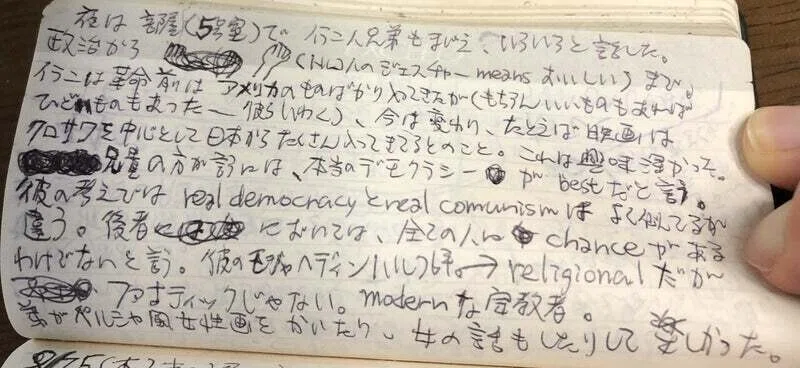 夜は部屋(5号室)でイラン人兄弟もまじえ、いろいろと話した。
政治から (NW人のジェスチャー means おいしい)まで。
イランは革命前はアメリカのものばかり入ってきたが(もちろんいいものもあれば
ひどいものもあった ー 彼らいわく)、今は変わり、たとえば映画は
クロサワを中心として日本からたくさん入ってきてるとのこと。これは興味深かった。
兄貴の方が言うには、本当のデモクラシーが bestだと言う。
彼の考えでは real democracyとreal comunismは よく似てるが
違う。後者においては、全ての人に chanceがある
わけでないと言う。彼のモジャヘディン → religionalだが
ファナティックじゃない。modernな宗教者。
弟がペルシャ風女性画をかいたり、女の話もしたりして楽しかった。
8/25(